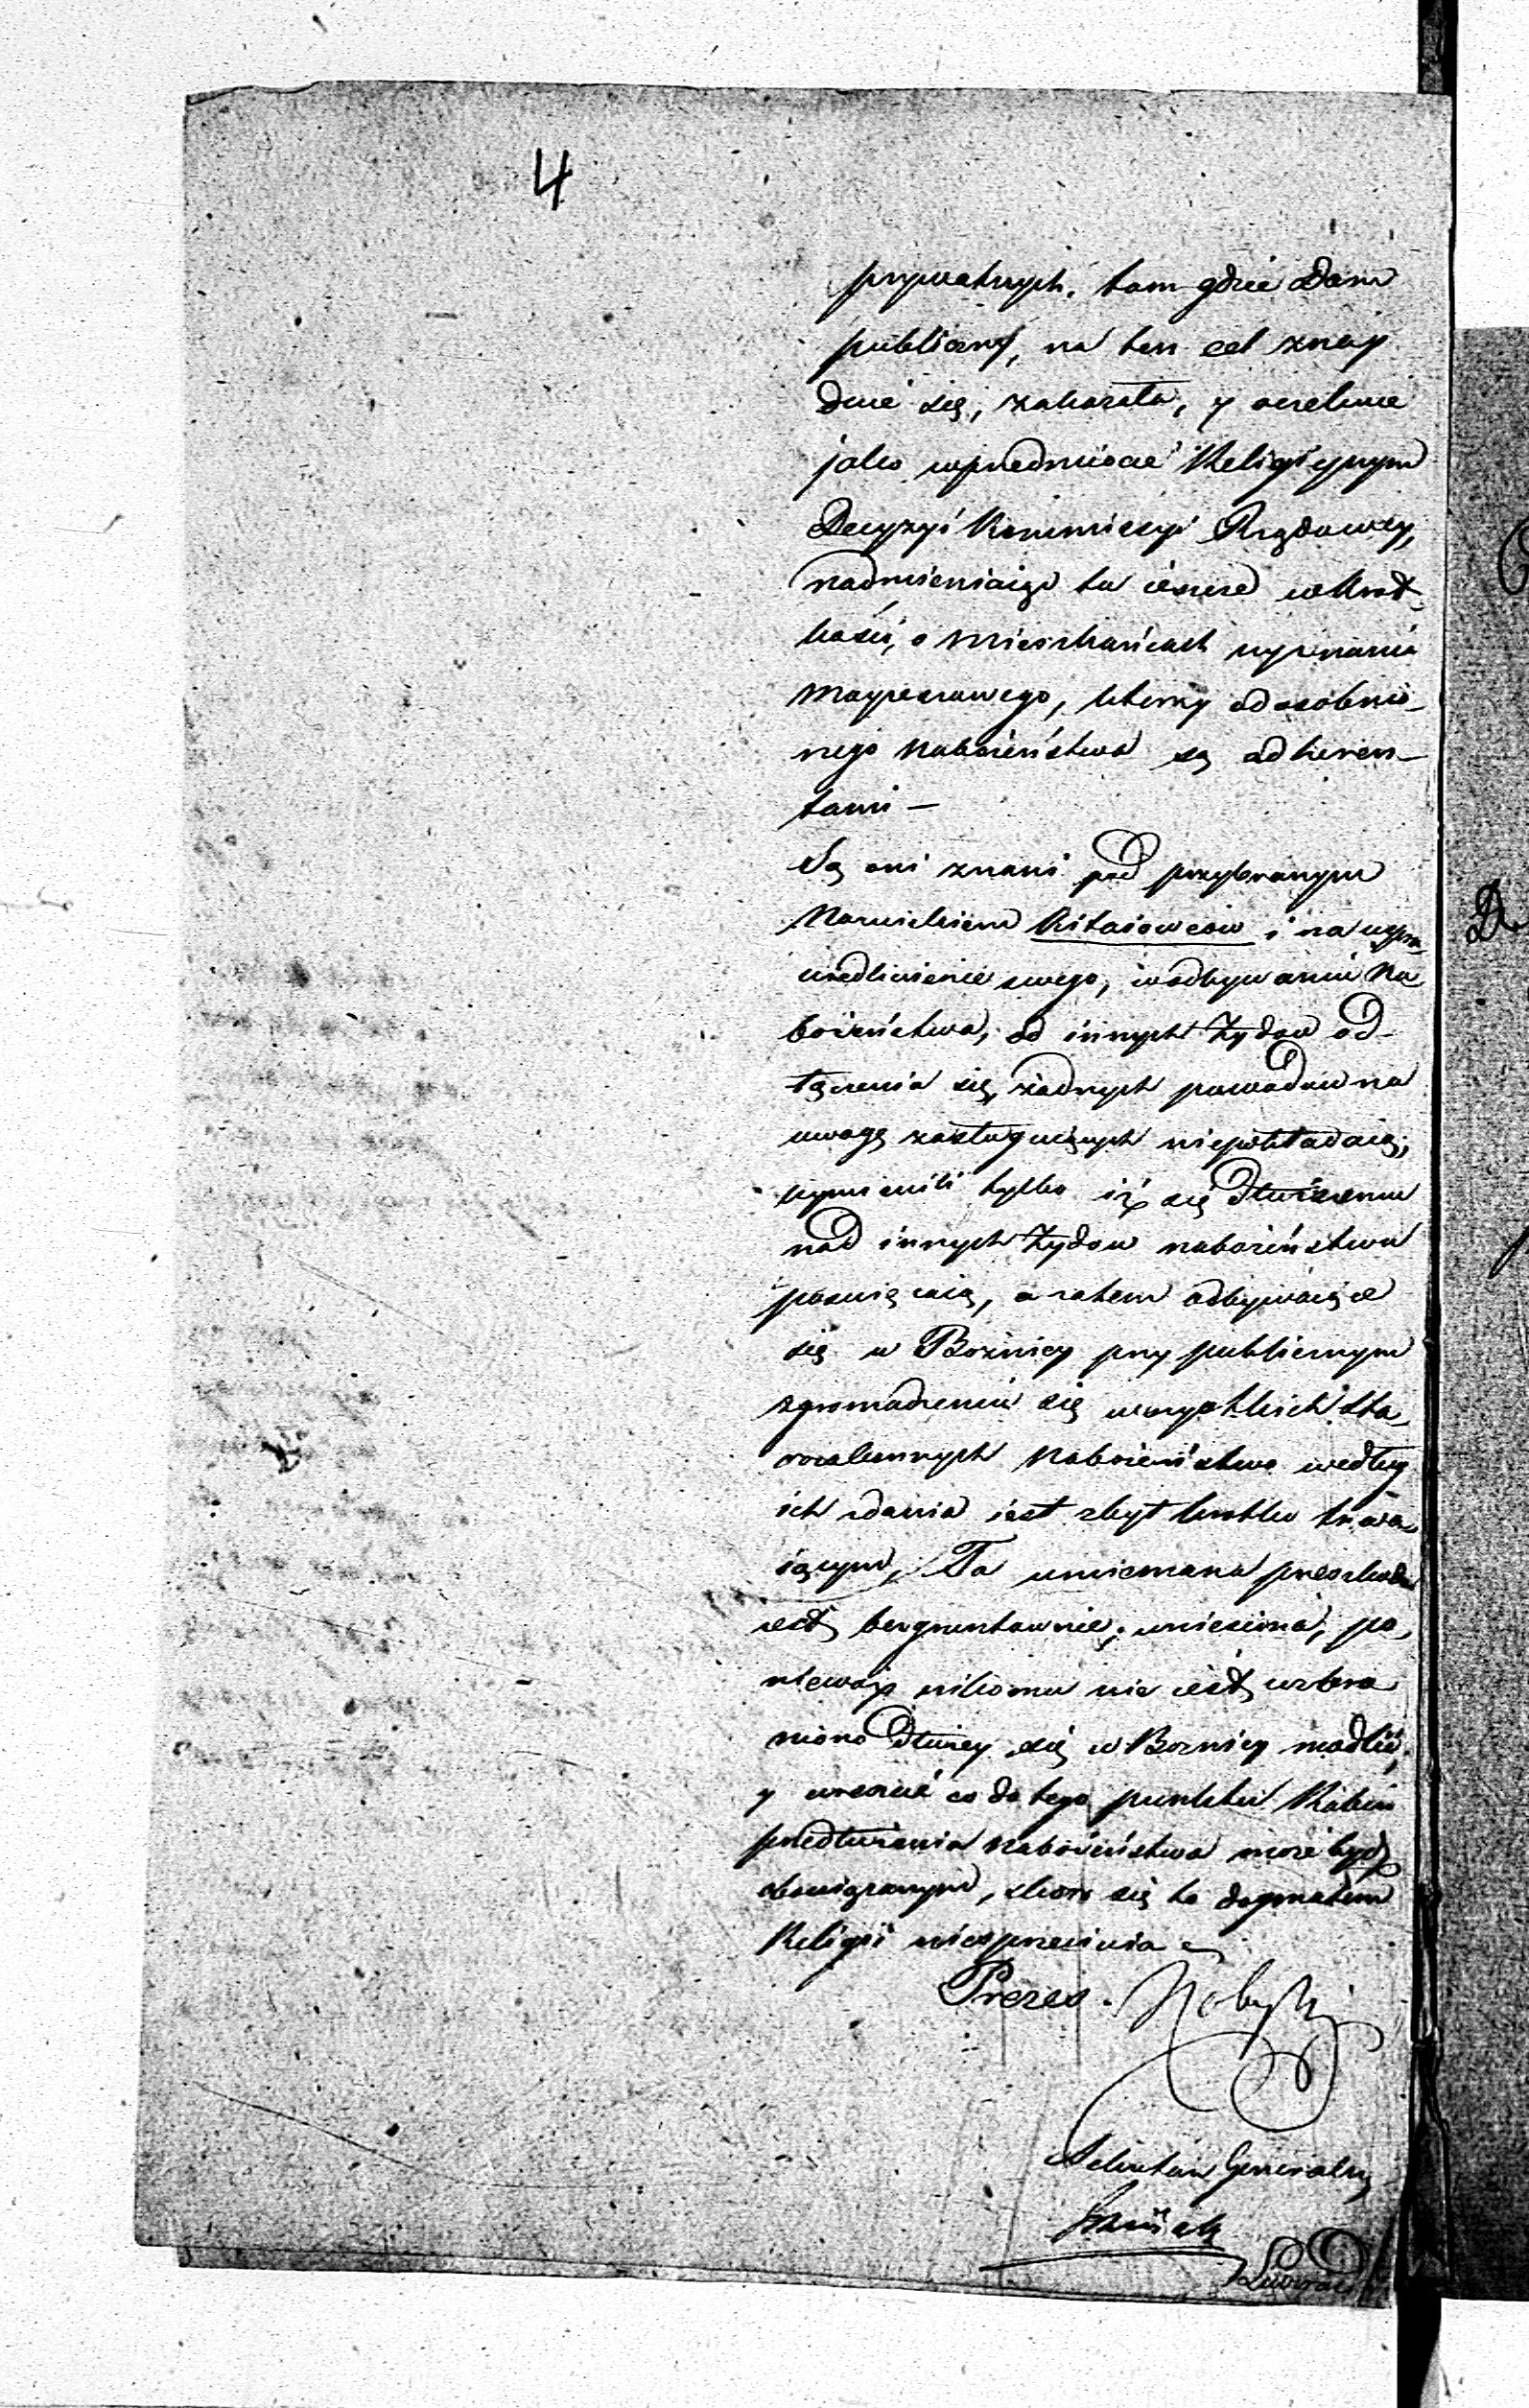 4
prywatnych, tam gdzie Dom
publiczny, na ten cel znay
duie się, zakazała, y oczekuie
jako wprzedmiocie Religiynym
Decyzyi Kommissyi Rządowey,
nadmieniaiąc tu ieszcze wkrót
kości, o Mieszkańcach wyznania
Moyżeszowego, którzy odosobnio_
nego Nabożeństwa są adheren_
tami –
Są oni znani pod przybranym
Nazwiskiem Kitaiowców i na uspra_
wiedliwienie swego, wodbywaniu Na_
bożeństwa, od innych Żydów od_
łączenia się, żadnych powodów na
uwagę zasługuiących niepokładaią,
wymienili tylko iż się dłuższemu
nad innych Żydów nabożeństwu
poświęcaią, a zatem odbywaiące
się w Bożnicy przy publicznym
zgromadzeniu się wszystkich Sta_
rozakonnych Nabożeństwo według
ich zdania iest zbyt krótko trwa_
iącym, Ta mniemana przeszkoda
iest bezgruntownie wniesiona, po_
nieważ nikomu nie iest wzbro
niono dłużey się w Boznicy modlić,
y wreszcie co do tego punktu Rabin
przedłużania Nabożeństwa może bydź
obowiązanym, skoro się to dogmatom
Religii niesprzeciwia
Prezes.
Sekretarz Generalny